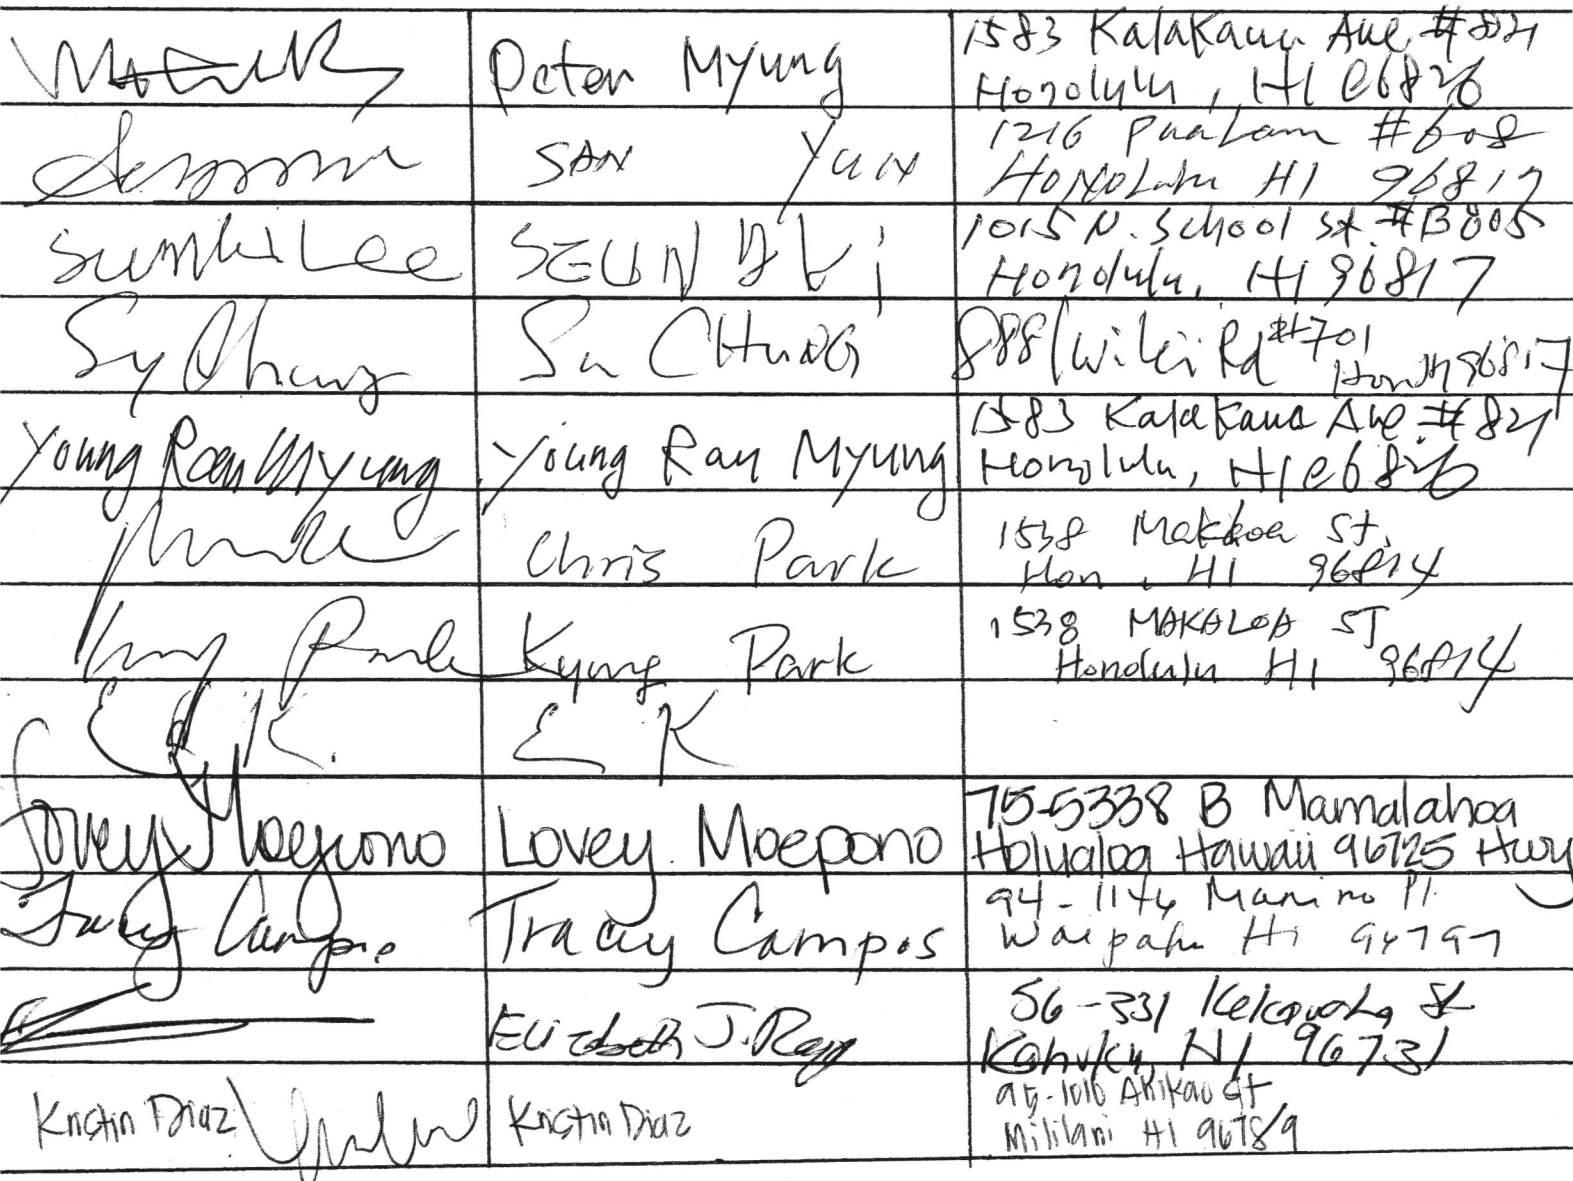 Peter Myung 1583 Kalakaua Ave. #821
Honolulu, HI 96826
SAN YUN 1216 #608
HONOLULU HI 96817
Sunhi Lee SEUN 1015 N. School St. #B805
Honolulu, HI 96817
Sy Chung Su CHUNG 888 Wiliki Rd #701
Hon 96817
Young Ran Myung Young Ran Myung 1583 Kalakaua Ave. #821
Honolulu, HI 96826
Chris Park 1538 St.
Hon, HI 96814
Park Kyung Park 1538 MAKALOA ST
Honolulu HI 96814
E K. E K
Lovey Moepono Lovey Moepono 75-5338 B Mamalahoa
Holualoa Hawaii 96725 Hwy
Tracy Campos Tracy Campos 94-1146 Pl.
Waipahu Hi 96797
Elizabeth J. 56-331 St
Kahuku, HI 96731
Kristin Diaz Kristin Diaz 95-1010 Ahikao St
Mililani HI 96789